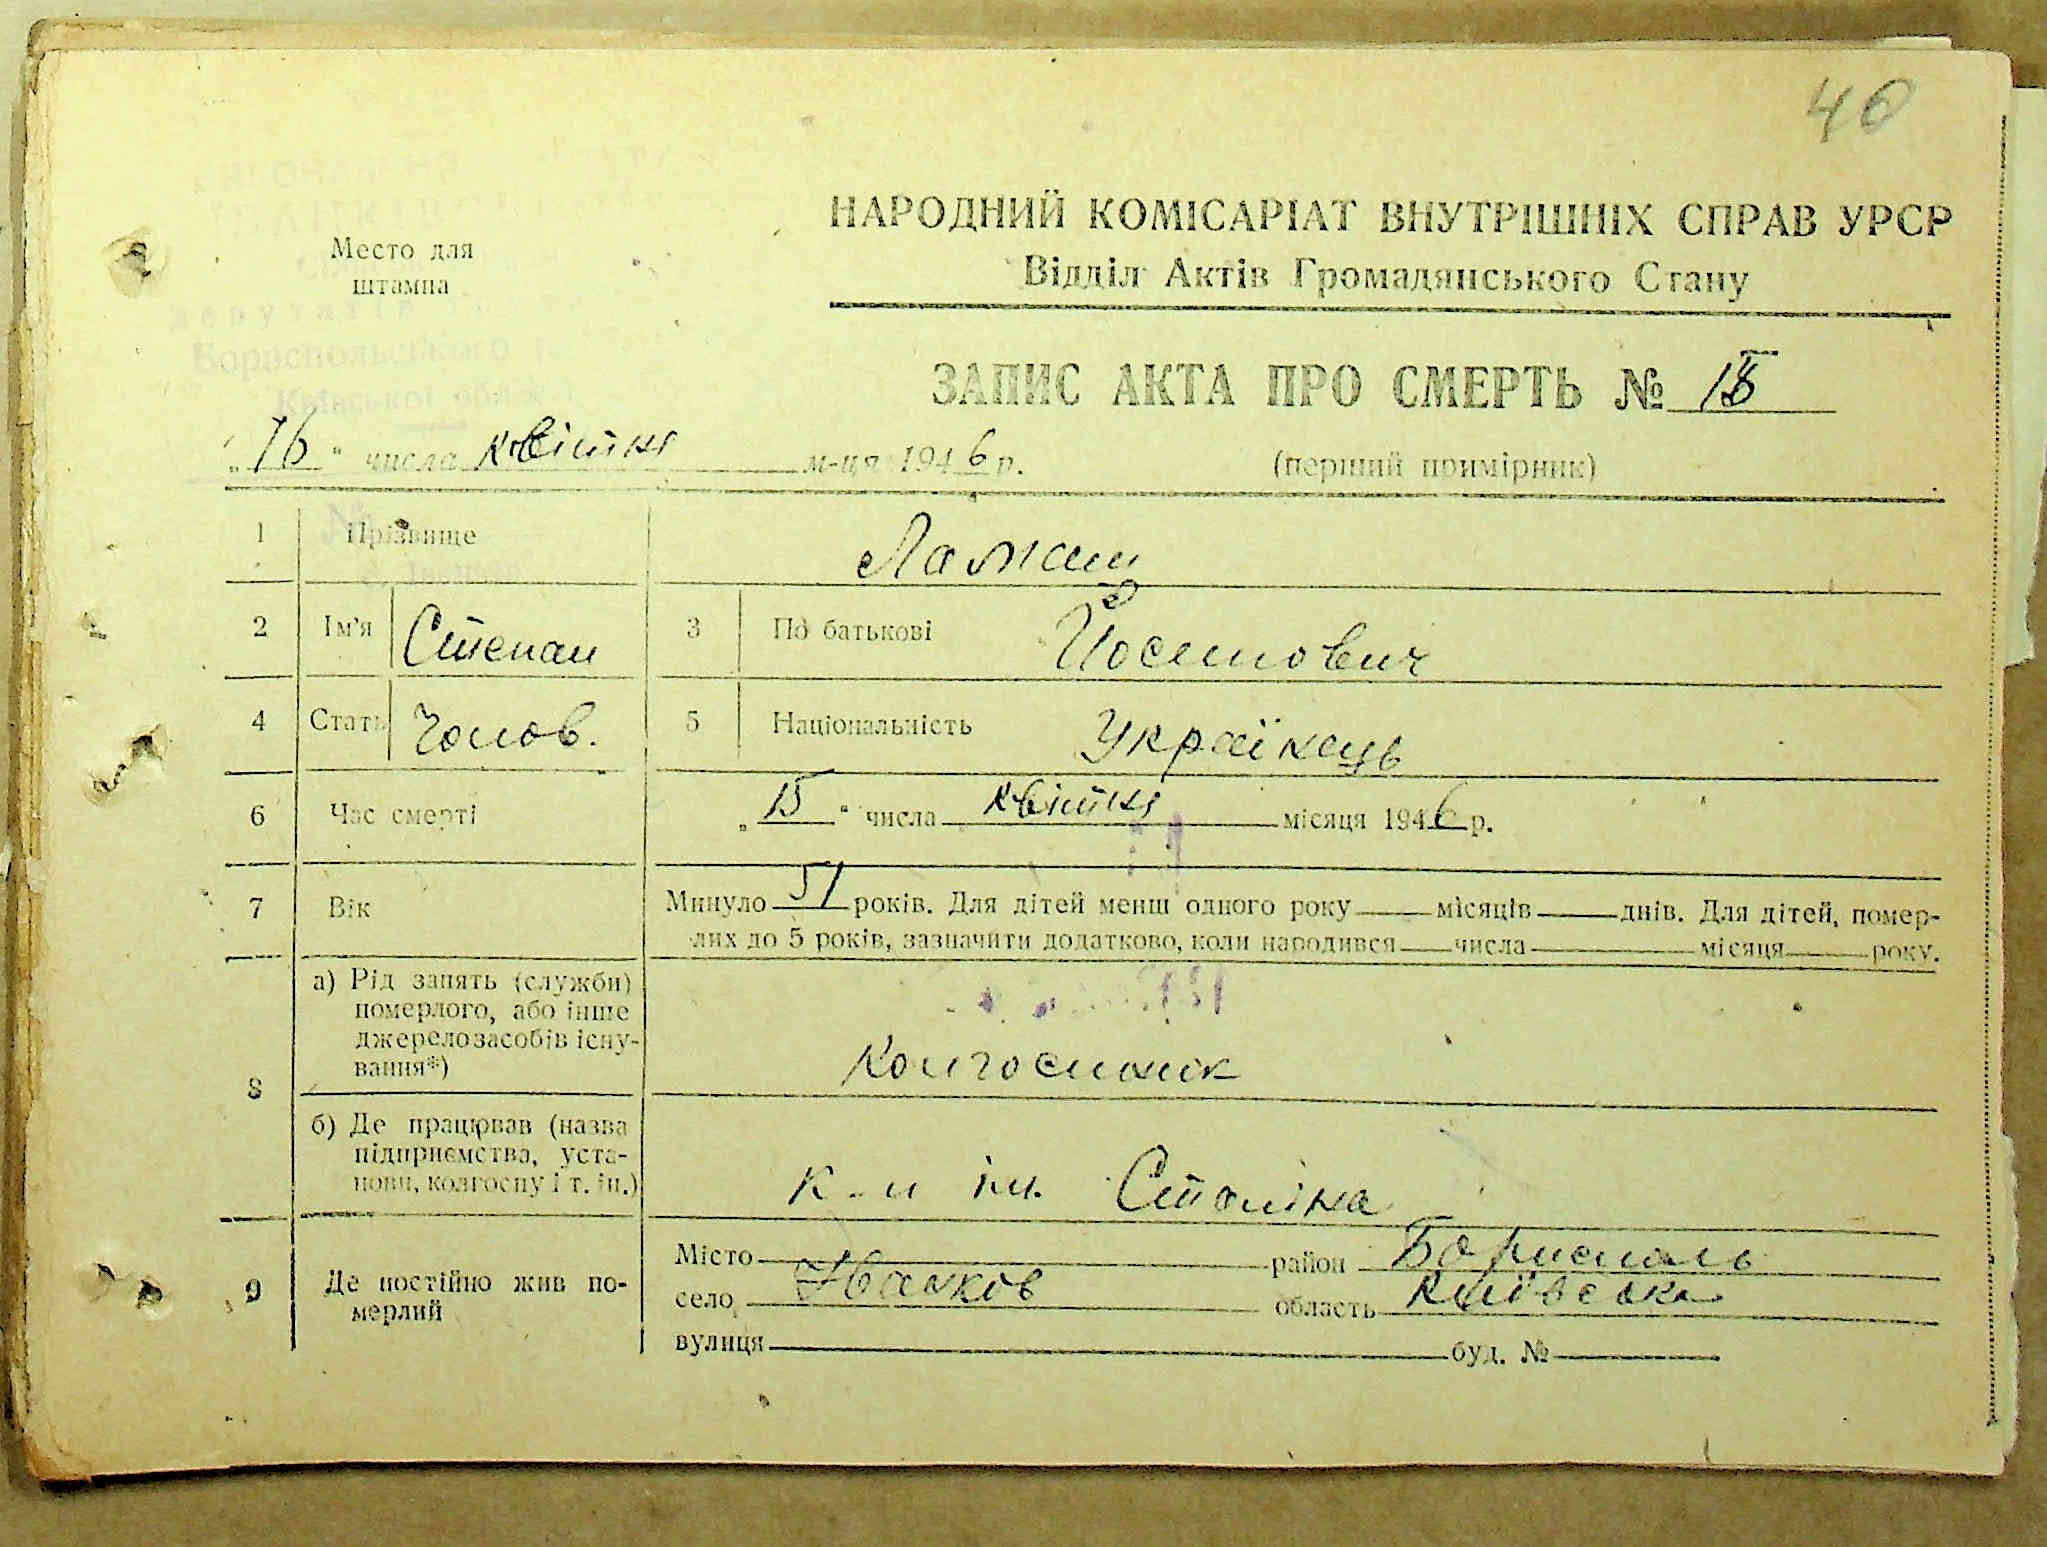 40
НАРОДНИЙ КОМІСАРІАТ ВНУТРІШНІХ СПРАВ УРСР
Место для штампа
Відділ Актів Громадянського Стану
ЗАПИС АКТА ПРО СМЕРТЬ №
„16“ числа квітня м-ця 1946 р.
(перший примірник)
1 Прізвище Ламаш
2 Ім'я Степан 3 По батькові Йосипович
4 Стать Чолов. 5 Національність Українець
6 Час смерті „15“ числа квітня місяця 1946 р.
7 Вік Минуло 51 років. Для дітей менш одного року місяців днів. Для дітей, помер-
лих до 5 років, зазначити додатково, коли народився числа місяця року.
8 а) Рід занять (служби)
померлого, або інше
джерело засобів існу-
вання*) Колгоспник
б) Де працював (назва
підприємства, уста-
нови, колгоспу і т. ін.) к-п ім. Сталіна
9 Де постійно жив по-
мерлий
Місто район Бориспіль
село Іванків область Київська
вулиця буд. №